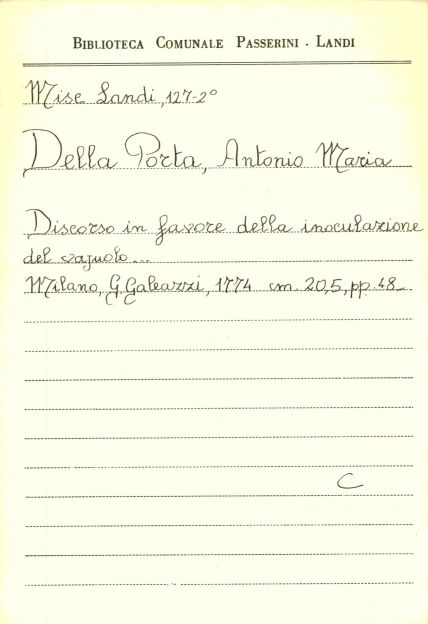 BIBLIOTECA COMUNALE PASSERINI - LANDI
Misc Landi, 127-2°
Della Porta, Antonio Maria
Discorso in favore della inoculazione
del vajuolo...
Milano, G. Galeazzi, 1774 cm. 20,5, pp. 48_
C